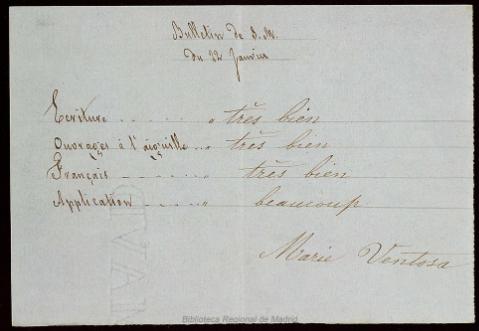 Bulletin de S. M.
du 22 Janvier
Ecriture . . . . . " très bien
Ouvrages à l'aiguille . . " très bien
Français . . . . . " très bien
Application . . . . " beaucoup
Marie Ventosa
Biblioteca Regional de Madrid